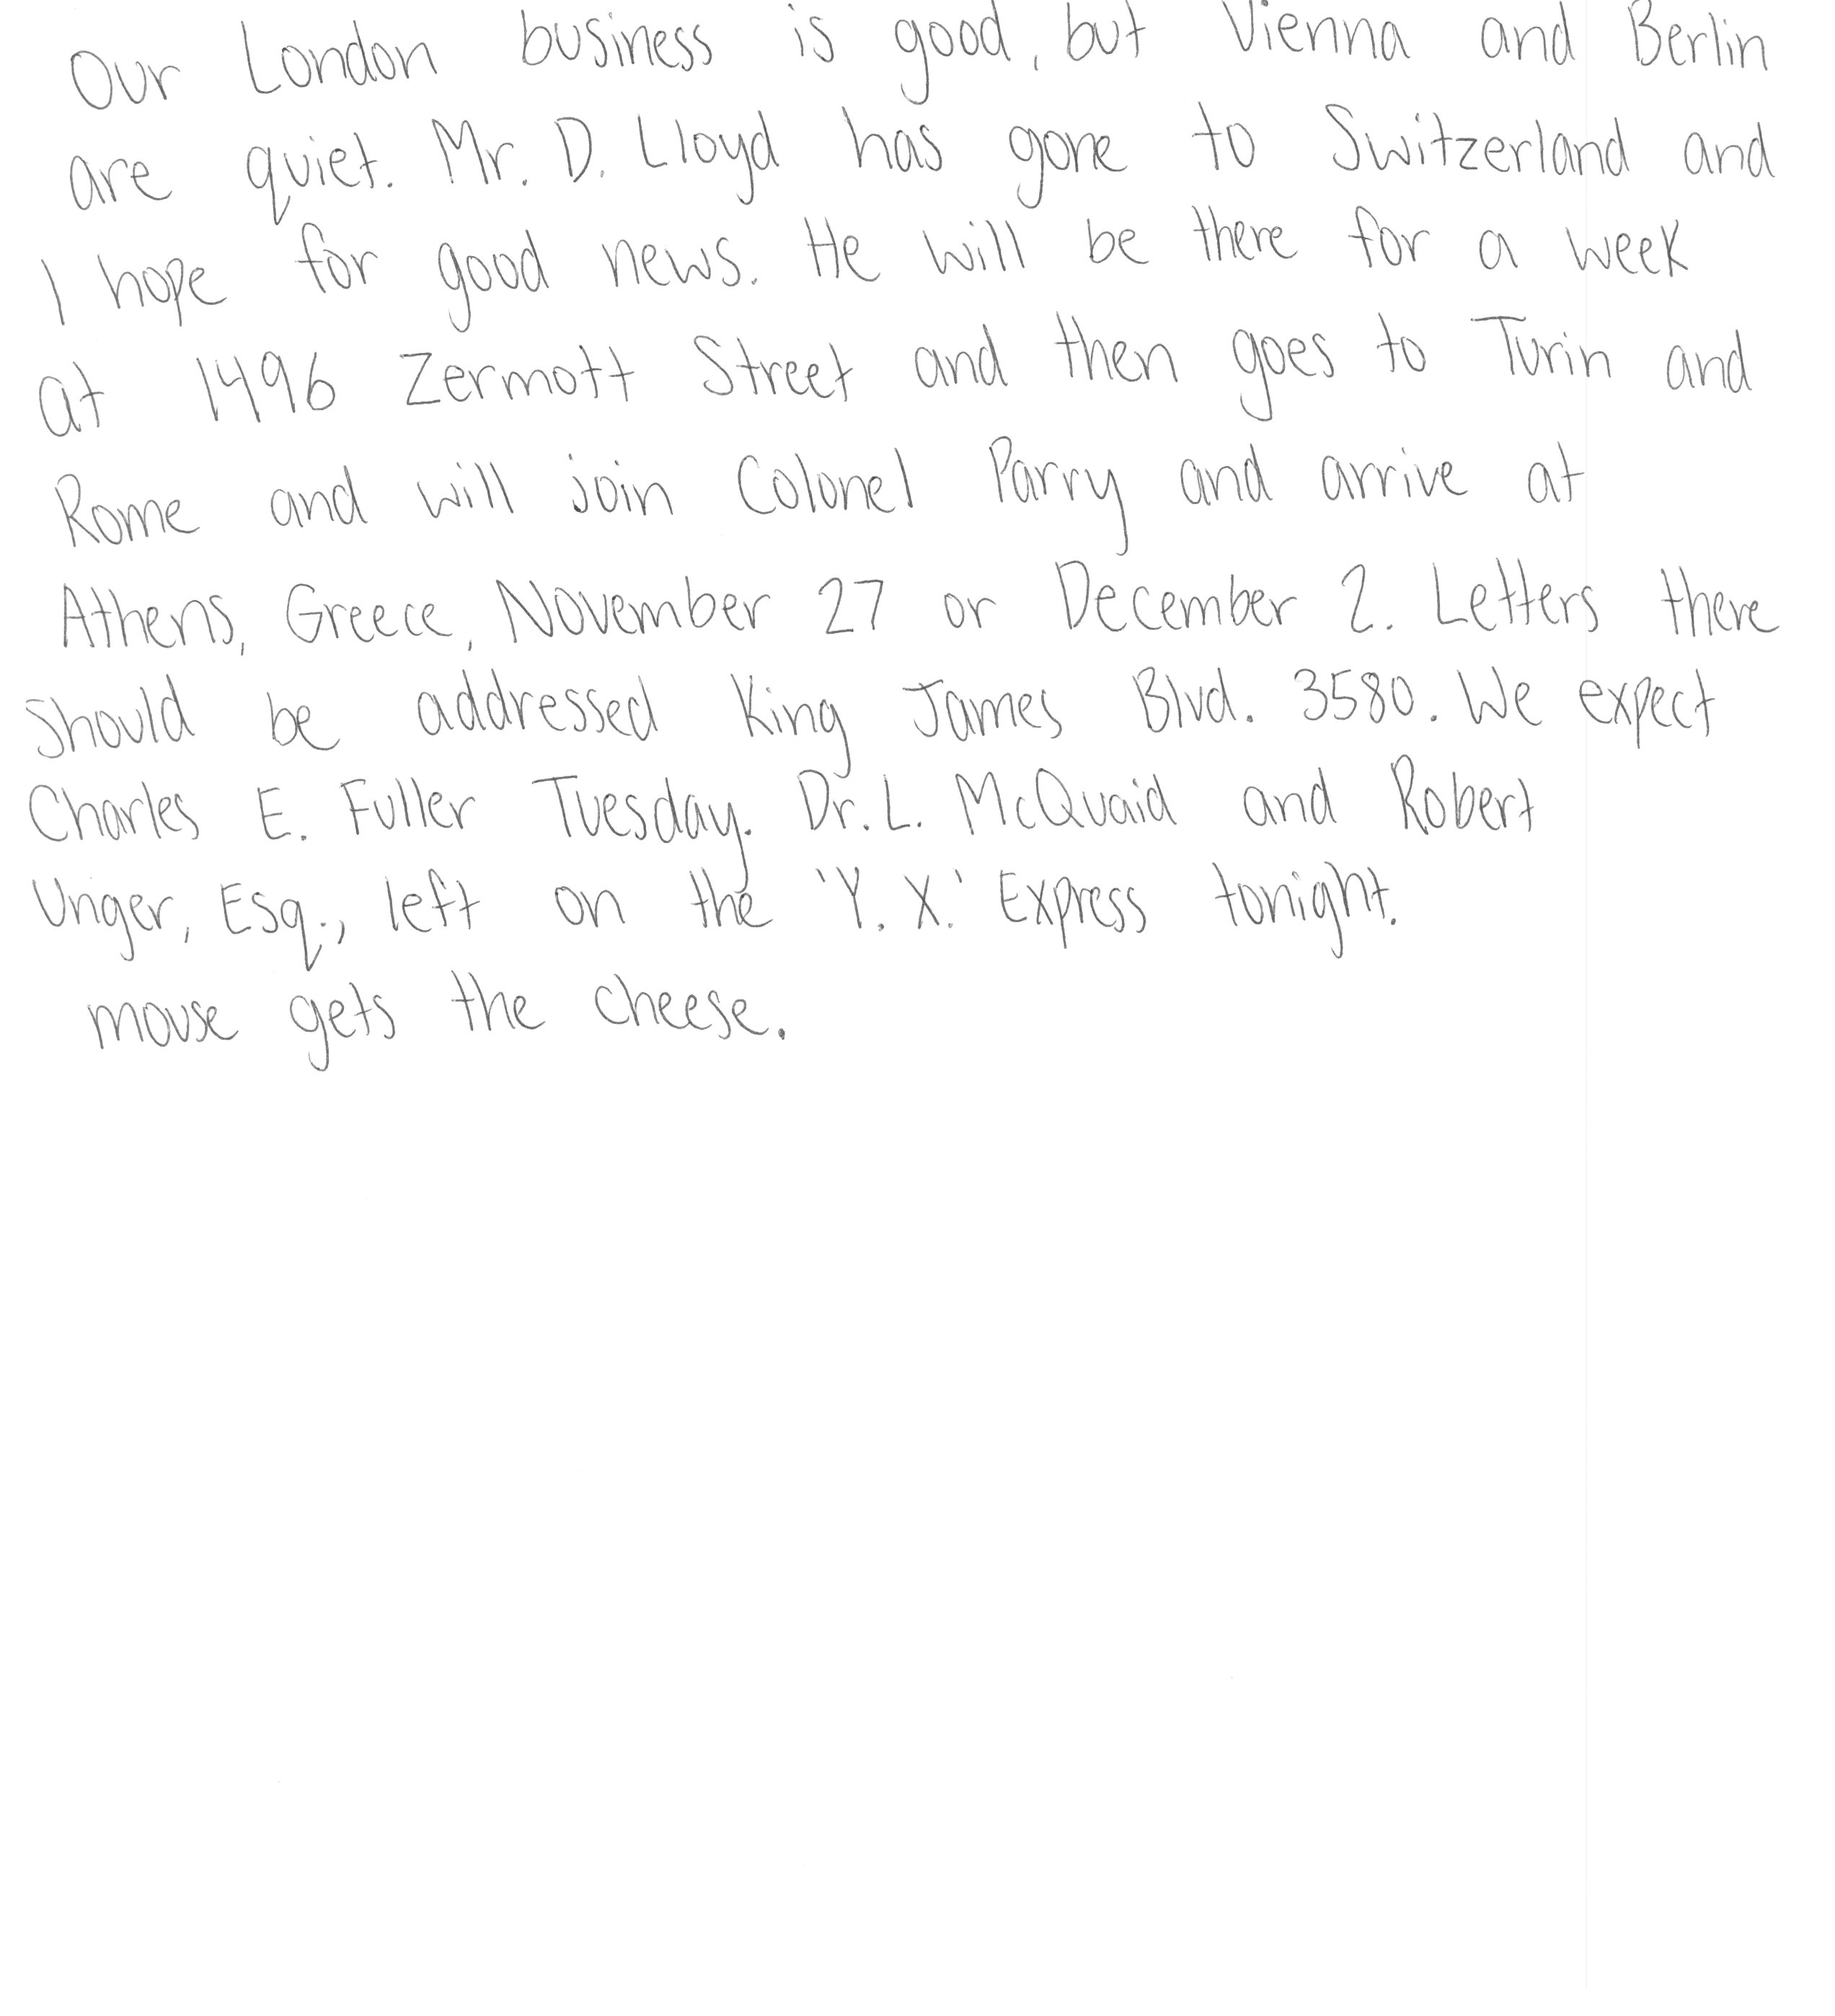 Our London business is good, but Vienna and Berlin
are quiet. Mr. D. Lloyd has gone to Switzerland and
I hope for good news. He will be there for a week
at 1496 Zermott Street and then goes to Turin and
Rome and will join Colonel Parry and arrive at
Athens, Greece, November 27 or December 2. Letters there
should be addressed King James Blvd. 3580. We expect
Charles E. Fuller Tuesday. Dr. L. McQuaid and Robert
Unger, Esq., left on the 'Y. X.' Express tonight.
mouse gets the cheese.